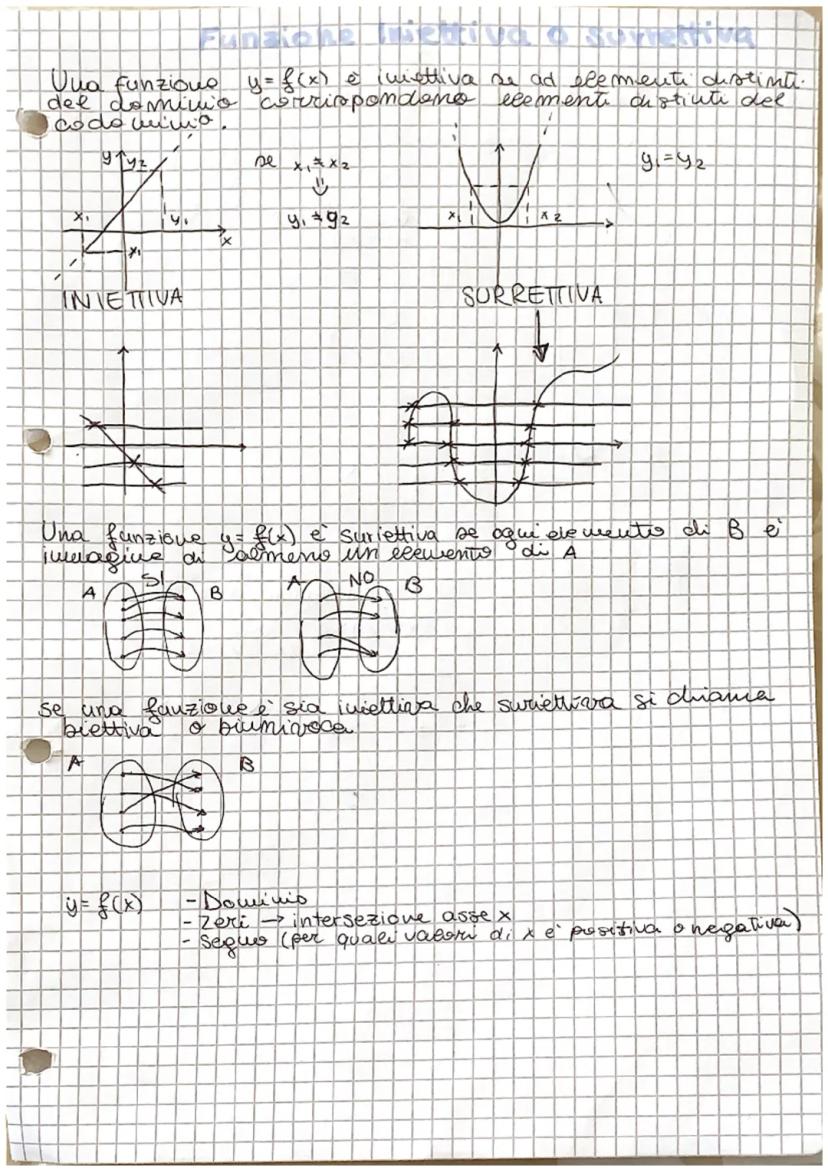 Funzione Iniettiva o Surrettiva
Una funzione y=f(x) è iniettiva se ad elementi distinti
del dominio corrispondono elementi distinti del
codominio.
y y2 se x1≠x2 y1=y2
⇓
x1 y1 y1≠y2 x1 x2
x
x1
INIETTIVA SURRETTIVA
Una funzione y=f(x) è suriettiva se ogni elemento di B è
immagine di almeno un elemento di A
A SI B A NO B
Se una funzione è sia iniettiva che suriettiva si chiama
biettiva o biunivoca
A B
y=f(x) - Dominio
- Zeri → intersezione asse x
- Segno (per quali valori di x è positiva o negativa)